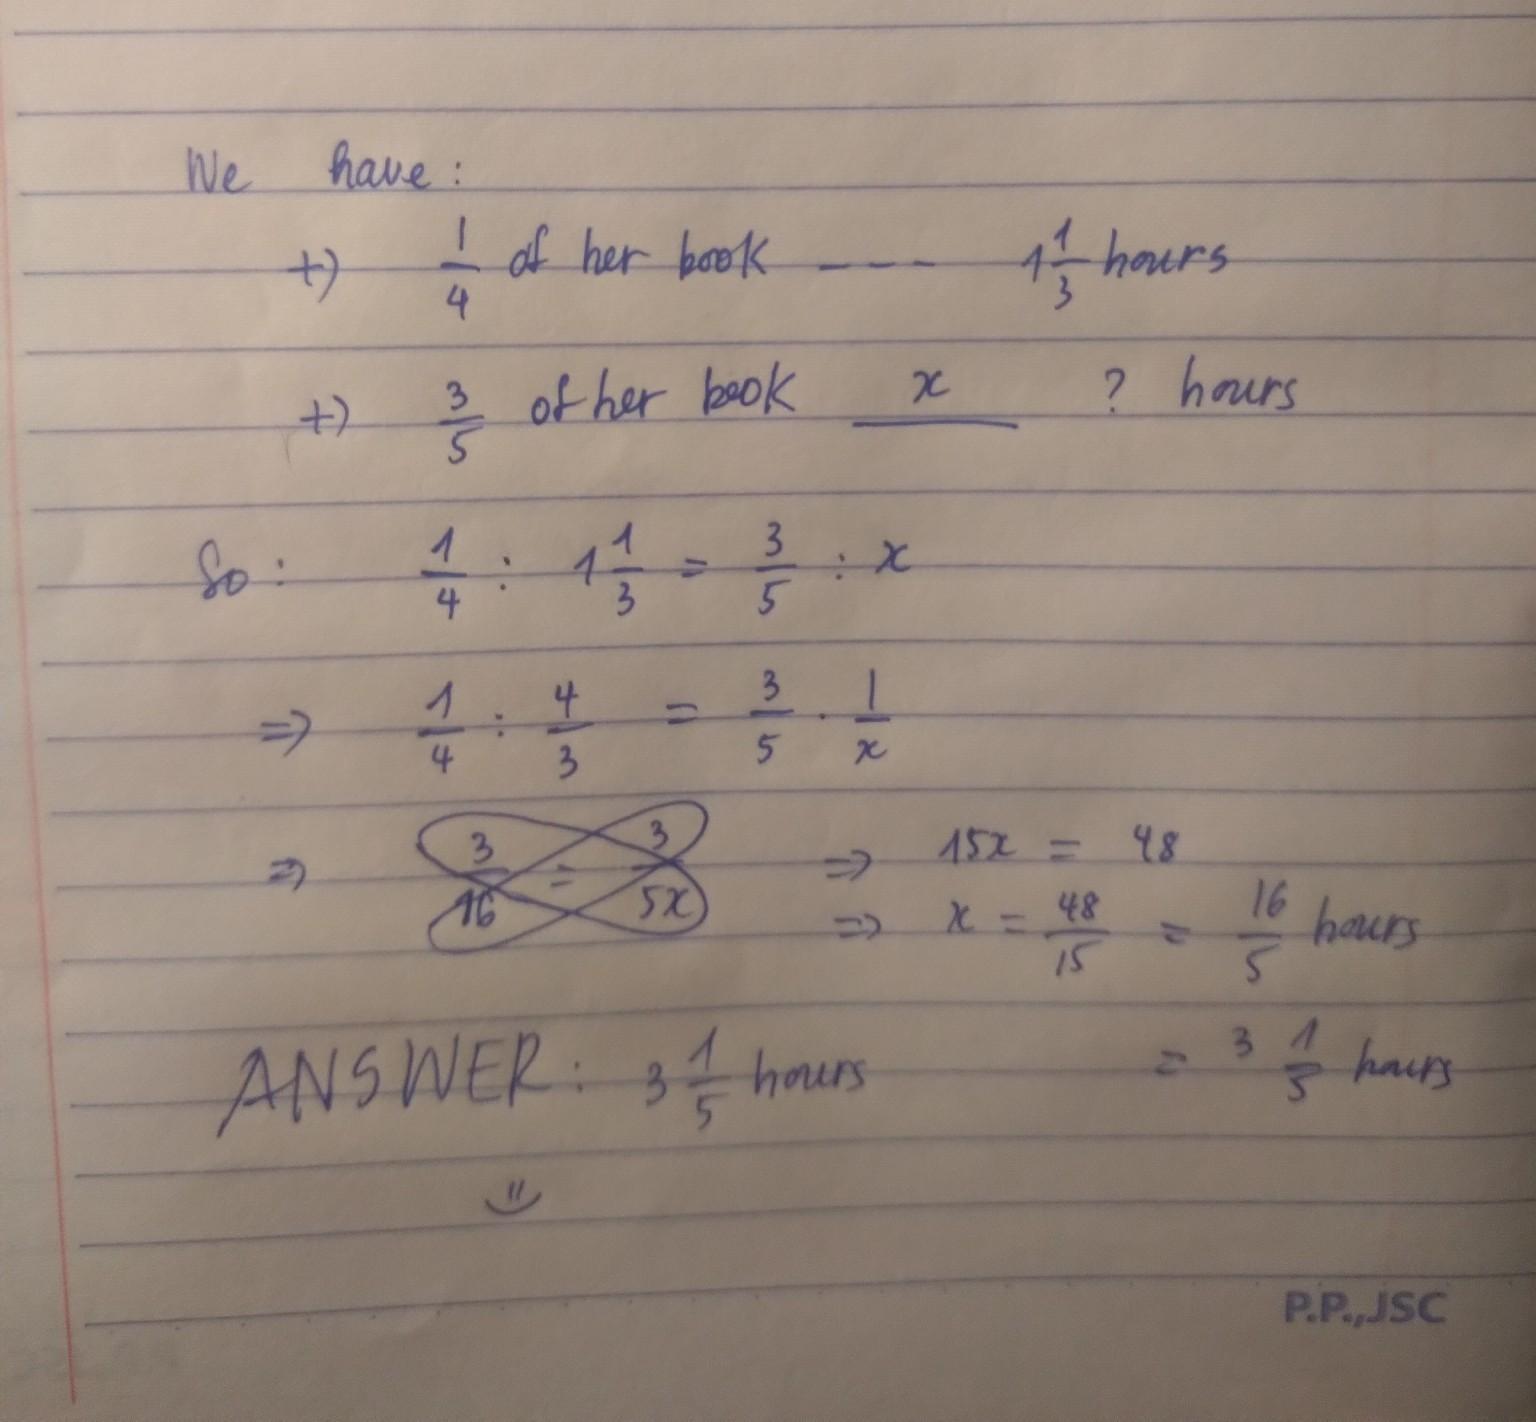 We have:
+) 1/4 of her book ---- 1 1/3 hours
+) 3/5 of her book x ? hours
So: 1/4 : 1 1/3 = 3/5 : x
=> 1/4 : 4/3 = 3/5 . 1/x
=> 3/16 = 3/5x => 15x = 48
=> x = 48/15 = 16/5 hours
= 3 1/5 hours
ANSWER: 3 1/5 hours
P.P.,JSC